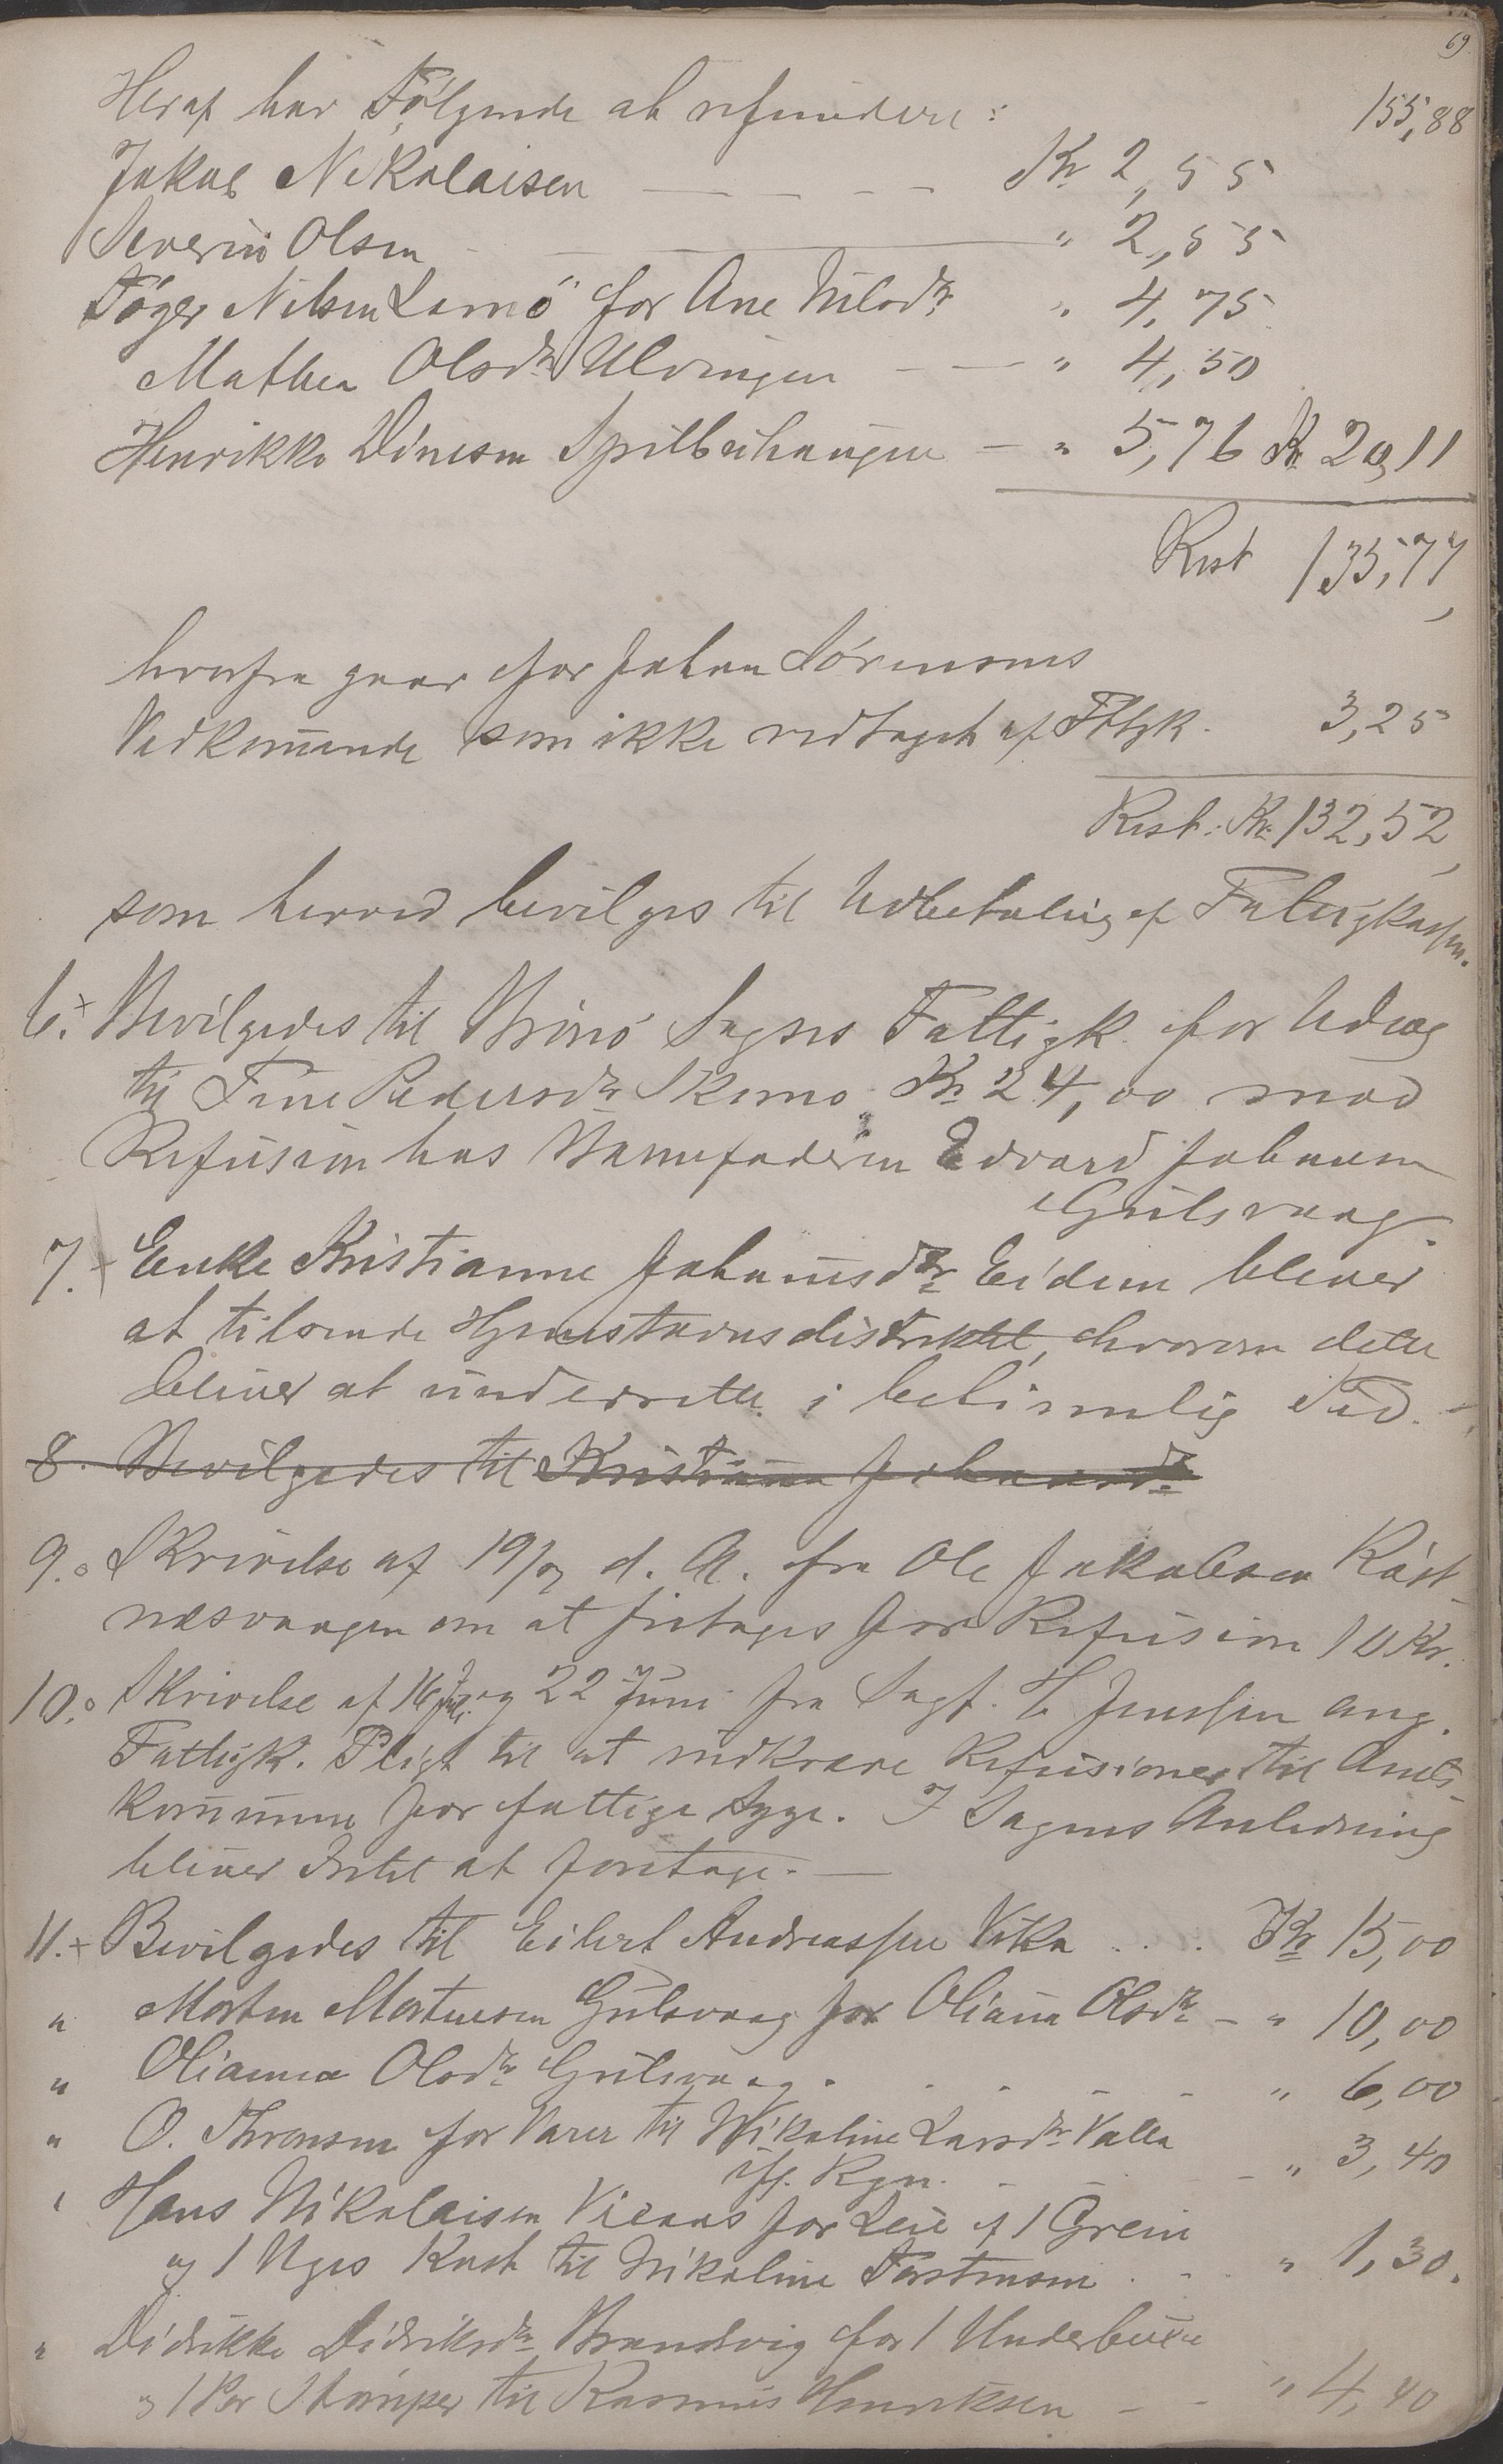 69
Heraf har Følgende at refundere: 155,88
Jakob Nikolaisen — — — — Kr 2,55
Severin Olsen — " 2,55
Tøger Nilsen Lamø for Ane Nilsdr " 4,75
Mathea Olsdr Ulvingen — — " 4,50
Henrikke Dinesen Spilberhaugen — " 5,76 Kr 20,11
Rest 135,77
hvorfra gaar for Johan Sørensens
Vedkommende som ikke vedtaget af Fttgk. 3,25
Rest: Kr. 132,52
som herved bevilges til Udbetaling af Fatigkassen.
6.+ Bevilgedes til Brønø Sogns Fattigk. for Udlæg
til Trine Pedersdr Skomo Kr 24,00 mod
Refusion hos Barnefaderen Edvard Johansen
Gulsvaag.
7.+ Enke Kristianne Johannesdr Eidem bliver
at tilsende Hjemstavnsdistriktet, hvorom dette
bliver at underrette i betimelig Tid.
8. Bevilgedes til Kristianna Johansdr
9.o Skrivelse af 19/7 d. A. fra Ole Jakobsen Råst
næsvaagen om at fritages for Refusion 10 Kr.
10.o Skrivelse af 16 Juli og 22 Juni fra Sagf. Jenssen ang.
Fattigk. Pligt til at indkræve Refusioner til Amts
kommune for fattige Syge. I Sagens Anledning
bliver Intet at foretage. —
11.+ Bevilgedes til Eilert Andreassen Vika . . . . Kr 15,00
" Morten Mortensen Gulsvaag for Oliana Olsdr — " 10,00
" Olianna Olsdr Gulsvaag . . . — — " 6,00
" O. Thronsen for Varer til Nikoline Larsdr Valla
iflg. Regn. — — — " 3,40
" Hans Nikolaisen Vicans for Leie af 1 Grein
og 1 Uges Kost til Nikoline Torstensen . - . " 1,30.
" Didrikke Didriksdr Brandsvig for 1 Underbuxe
og 1 Par Strømper til Rasmus Henriksen — - " 4,40